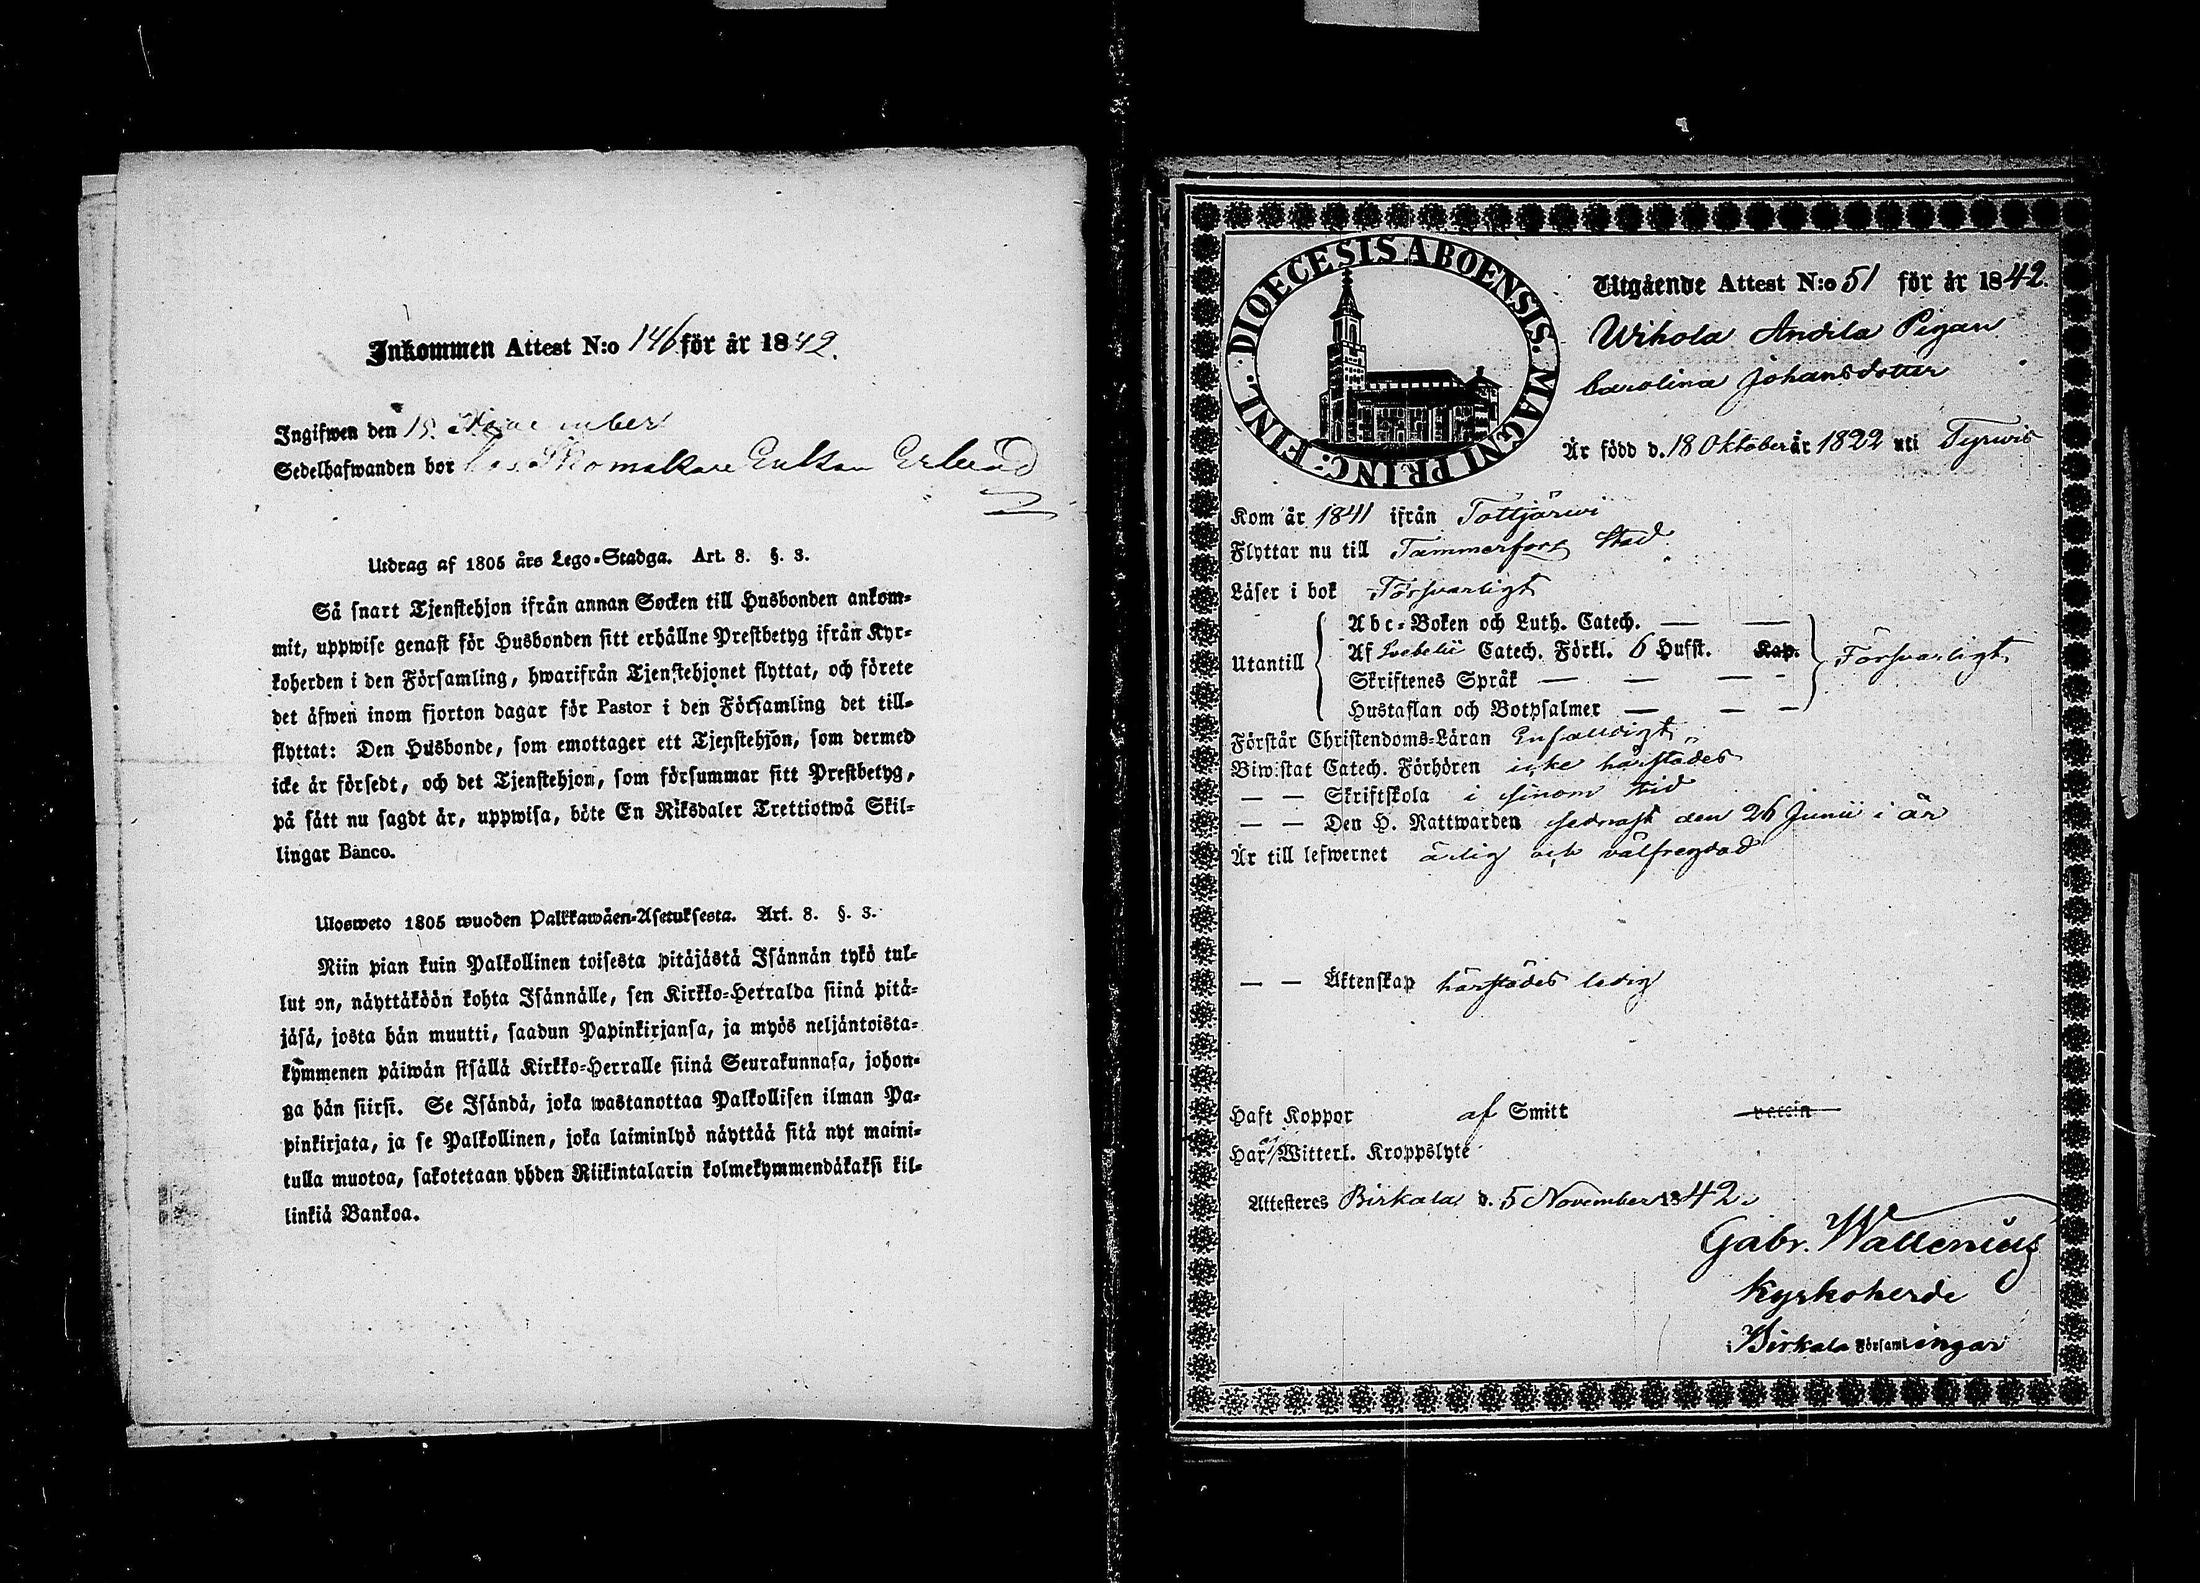 Inkommen Attest N:o 146 för år 1842.
Ingifwen den 15. November
Sedelhafwanden bor hos Skomakare Enkan Erlund
Utdrag af 1805 års Lego-Stadga. Art. 8. §. 3.
Så snart Tjenstehjon ifrån annan Socken till Husbonden ankom-
mit, uppwise genast för Husbonden sitt erhållne Prestbetyg ifrån Kyr-
koherden i den Församling, hwarifrån Tjenstehjonet flyttat, och förete
det äfwen inom fjorton dagar för Pastor i den Församling det till-
flyttat: Den Husbonde, som emottager ett Tjenstehjon, som dermed
icke är försedt, och det Tjenstehjon, som försummar sitt Prestbetyg,
på sätt nu sagdt är, uppwisa, böte En Riksdaler Trettiotwå Skil-
lingar Banco.
Ulosweto 1805 wuoden Palkkawäen-Asetuksesta. Art. 8. §. 3.
Niin pian kuin Palkollinen toisesta pitäjästä Isännän tykö tul-
lut on, näyttäköön kohta Isännälle, sen Kirkko-Herralda siinä pitä-
jäsä, josta hän muutti, saadun Papinkirjansa, ja myös neljäntoista-
kymmenen päiwän sisällä Kirkko-Herralle siinä Seurakunnasa, johon-
ga hän siirsi. Se Isändä, joka wastanottaa Palkollisen ilman Pa-
pinkirjata, ja se Palkollinen, joka laiminlyö näyttää sitä nyt maini-
tulla muotoa, sakotetaan yhden Riikintalarin kolmekymmendäkaksi kil-
linkiä Bankoa.
DIOECESIS ABOENSIS. MAGNI PRINC: FINL.
Utgående Attest N:o 51 för år 1842.
Wihola Andila Pigan
Carolina Johansdotter
Är född d. 18 Oktober år 1822 uti Tyrwis
Kom år 1841 ifrån Tottjärwi
Flyttar nu till Tammerfors Stad
Läser i bok Försvarligt
Abc-Boken och Luth. Catech. — —
Utantill Af Svebelii Catech. Förkl. 6 Hufst. Kap. Försvarligt
Skriftenes Språk — — — -
Hustaflan och Botpsalmer — — -
Förstår Christendoms-Läran Enfaldigt
Biwistat Catech. Förhören icke härstädes
— — Skriftskola i sinom tid
— — Den H. Nattwarden sednast den 26 Junii i år
Är till lefwernet ärlig och välfreydad
— — Äktenskap härstädes ledig
Haft Koppor af Smitt vaccin
Har ej Witterl. Kroppslyte
Attesteres Birkala d. 5 November 1842.
Gabr. Wallenius
Kyrkoherde
i Birkala Församlingar